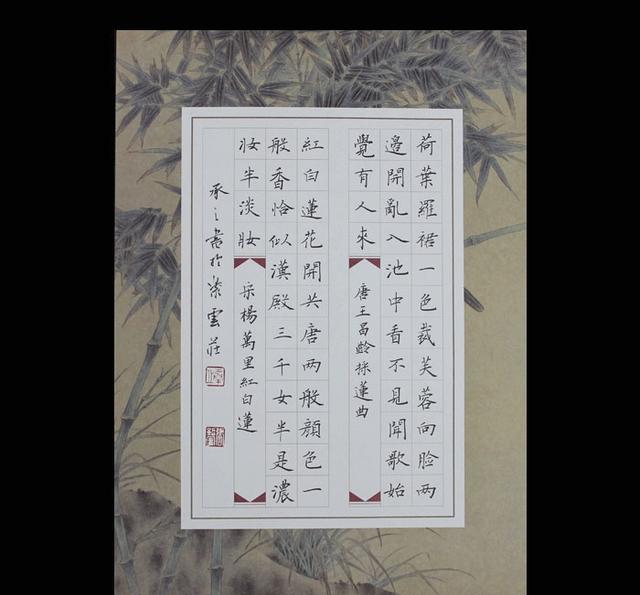 荷葉羅裙一色裁芙蓉向臉两
邊開亂入池中看不見聞歌始
覺有人來
唐王昌齡採蓮曲
紅白蓮花開共唐两般顏色一
般香恰似漢殿三千女半是濃
妆半淡妝
宋楊萬里紅白蓮
承之書於紫雲莊